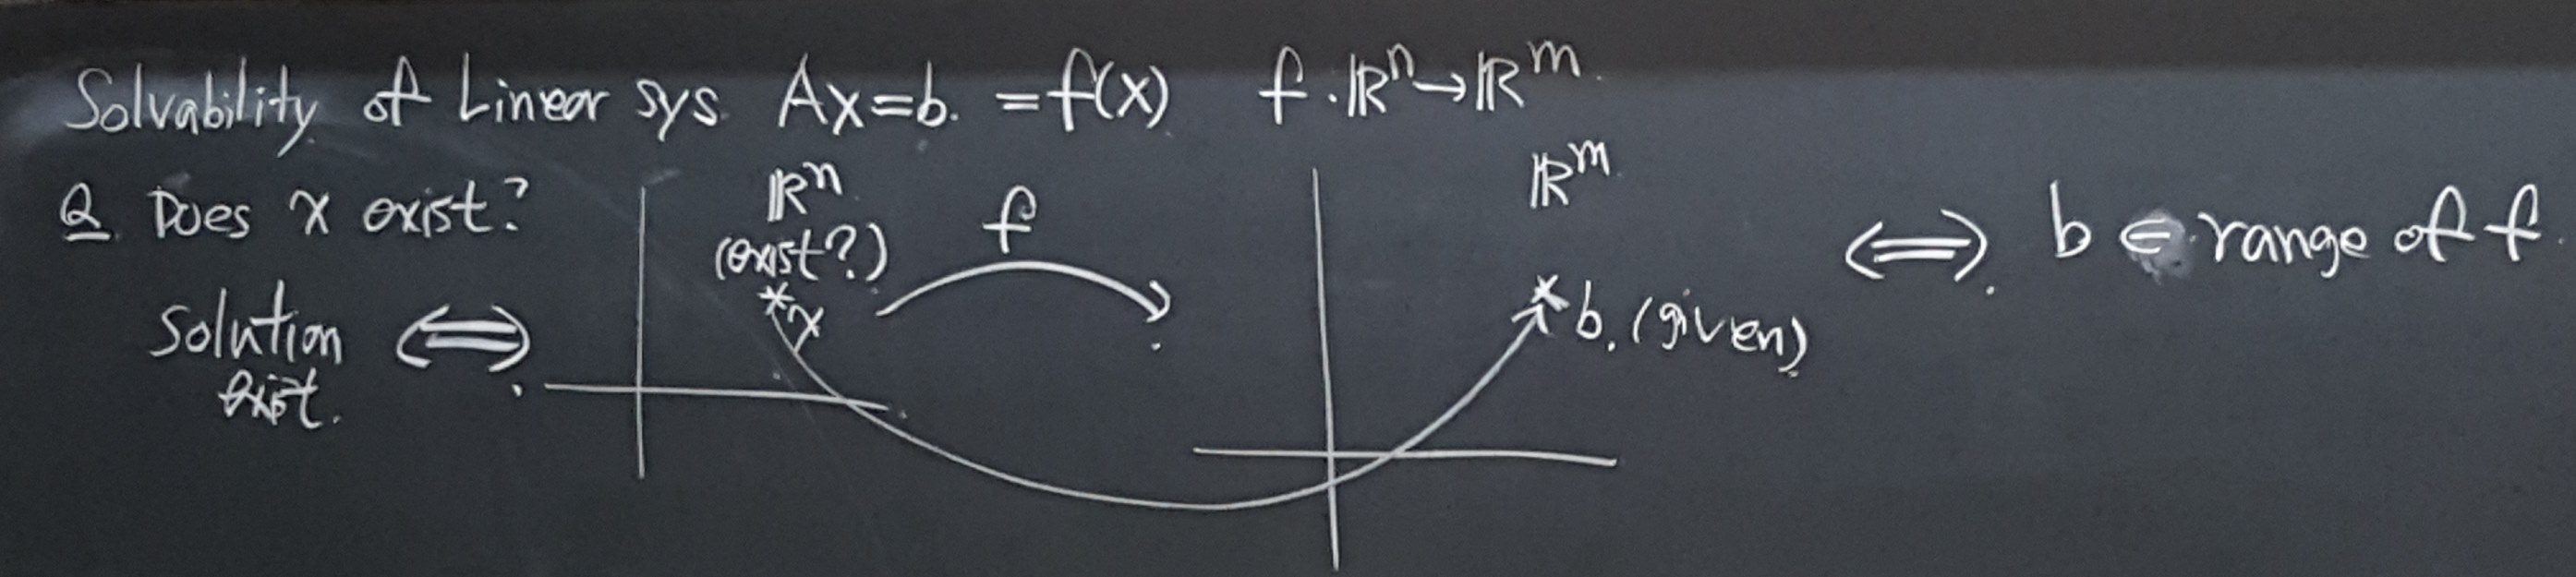 Solvability of Linear sys. Ax=b. =f(x) f:ℝⁿ→ℝᵐ.
Q. Does x exist?
Solution
exist.
⟺
ℝⁿ
(exist?)
x
f
ℝᵐ
b. (given)
⟺ b ∈ range of f.